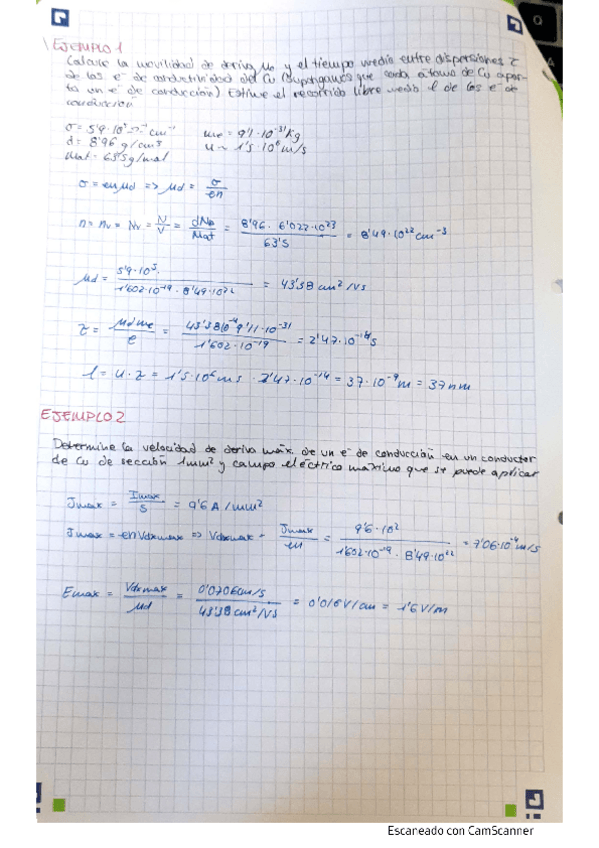 EJEMPLO 1
Calcule la movilidad de deriva μd y el tiempo medio entre dispersiones τ
de los e⁻ de conductividad del Cu (supongamos que cada átomo de Cu apor-
ta un e⁻ de conducción) Estime el recorrido libre medio l de los e⁻ de
conducción
σ = 5'9·10⁵ Ω⁻¹ cm⁻¹ me = 9'1·10⁻³¹ kg
d = 8'96 g/cm³ u ~ 1'5·10⁶ m/s
Mat = 63'5 g/mol
σ = enμd => μd = σ/en
n = nv = Nv = N/V = dNA/Mat = 8'96 · 6'022·10²³/63'5 = 8'49·10²² cm⁻³
μd = 5'9·10⁵/1'602·10⁻¹⁹ · 8'49·10²² = 43'38 cm²/Vs
τ = μd me/e = 43'38·10⁻⁴ 9'11·10⁻³¹/1'602·10⁻¹⁹ = 2'47·10⁻¹⁴ s
l = u·τ = 1'5·10⁶ m s · 2'47·10⁻¹⁴ = 37·10⁻⁹ m = 37 nm
EJEMPLO 2
Determine la velocidad de deriva máx de un e⁻ de conducción en un conductor
de Cu de sección 1mm² y campo eléctrico máximo que se puede aplicar
Jmax = Imax/S = 9'6 A/mm²
Jmax = enVdxmax => Vdxmax = Jmax/en = 9'6·10²/1'602·10⁻¹⁹ · 8'49·10²² = 7'06·10⁻⁴ m/s
Emax = Vdxmax/μd = 0'0706cm/s/43'38 cm²/Vs = 0'016V/cm = 1'6 V/m
Escaneado con CamScanner